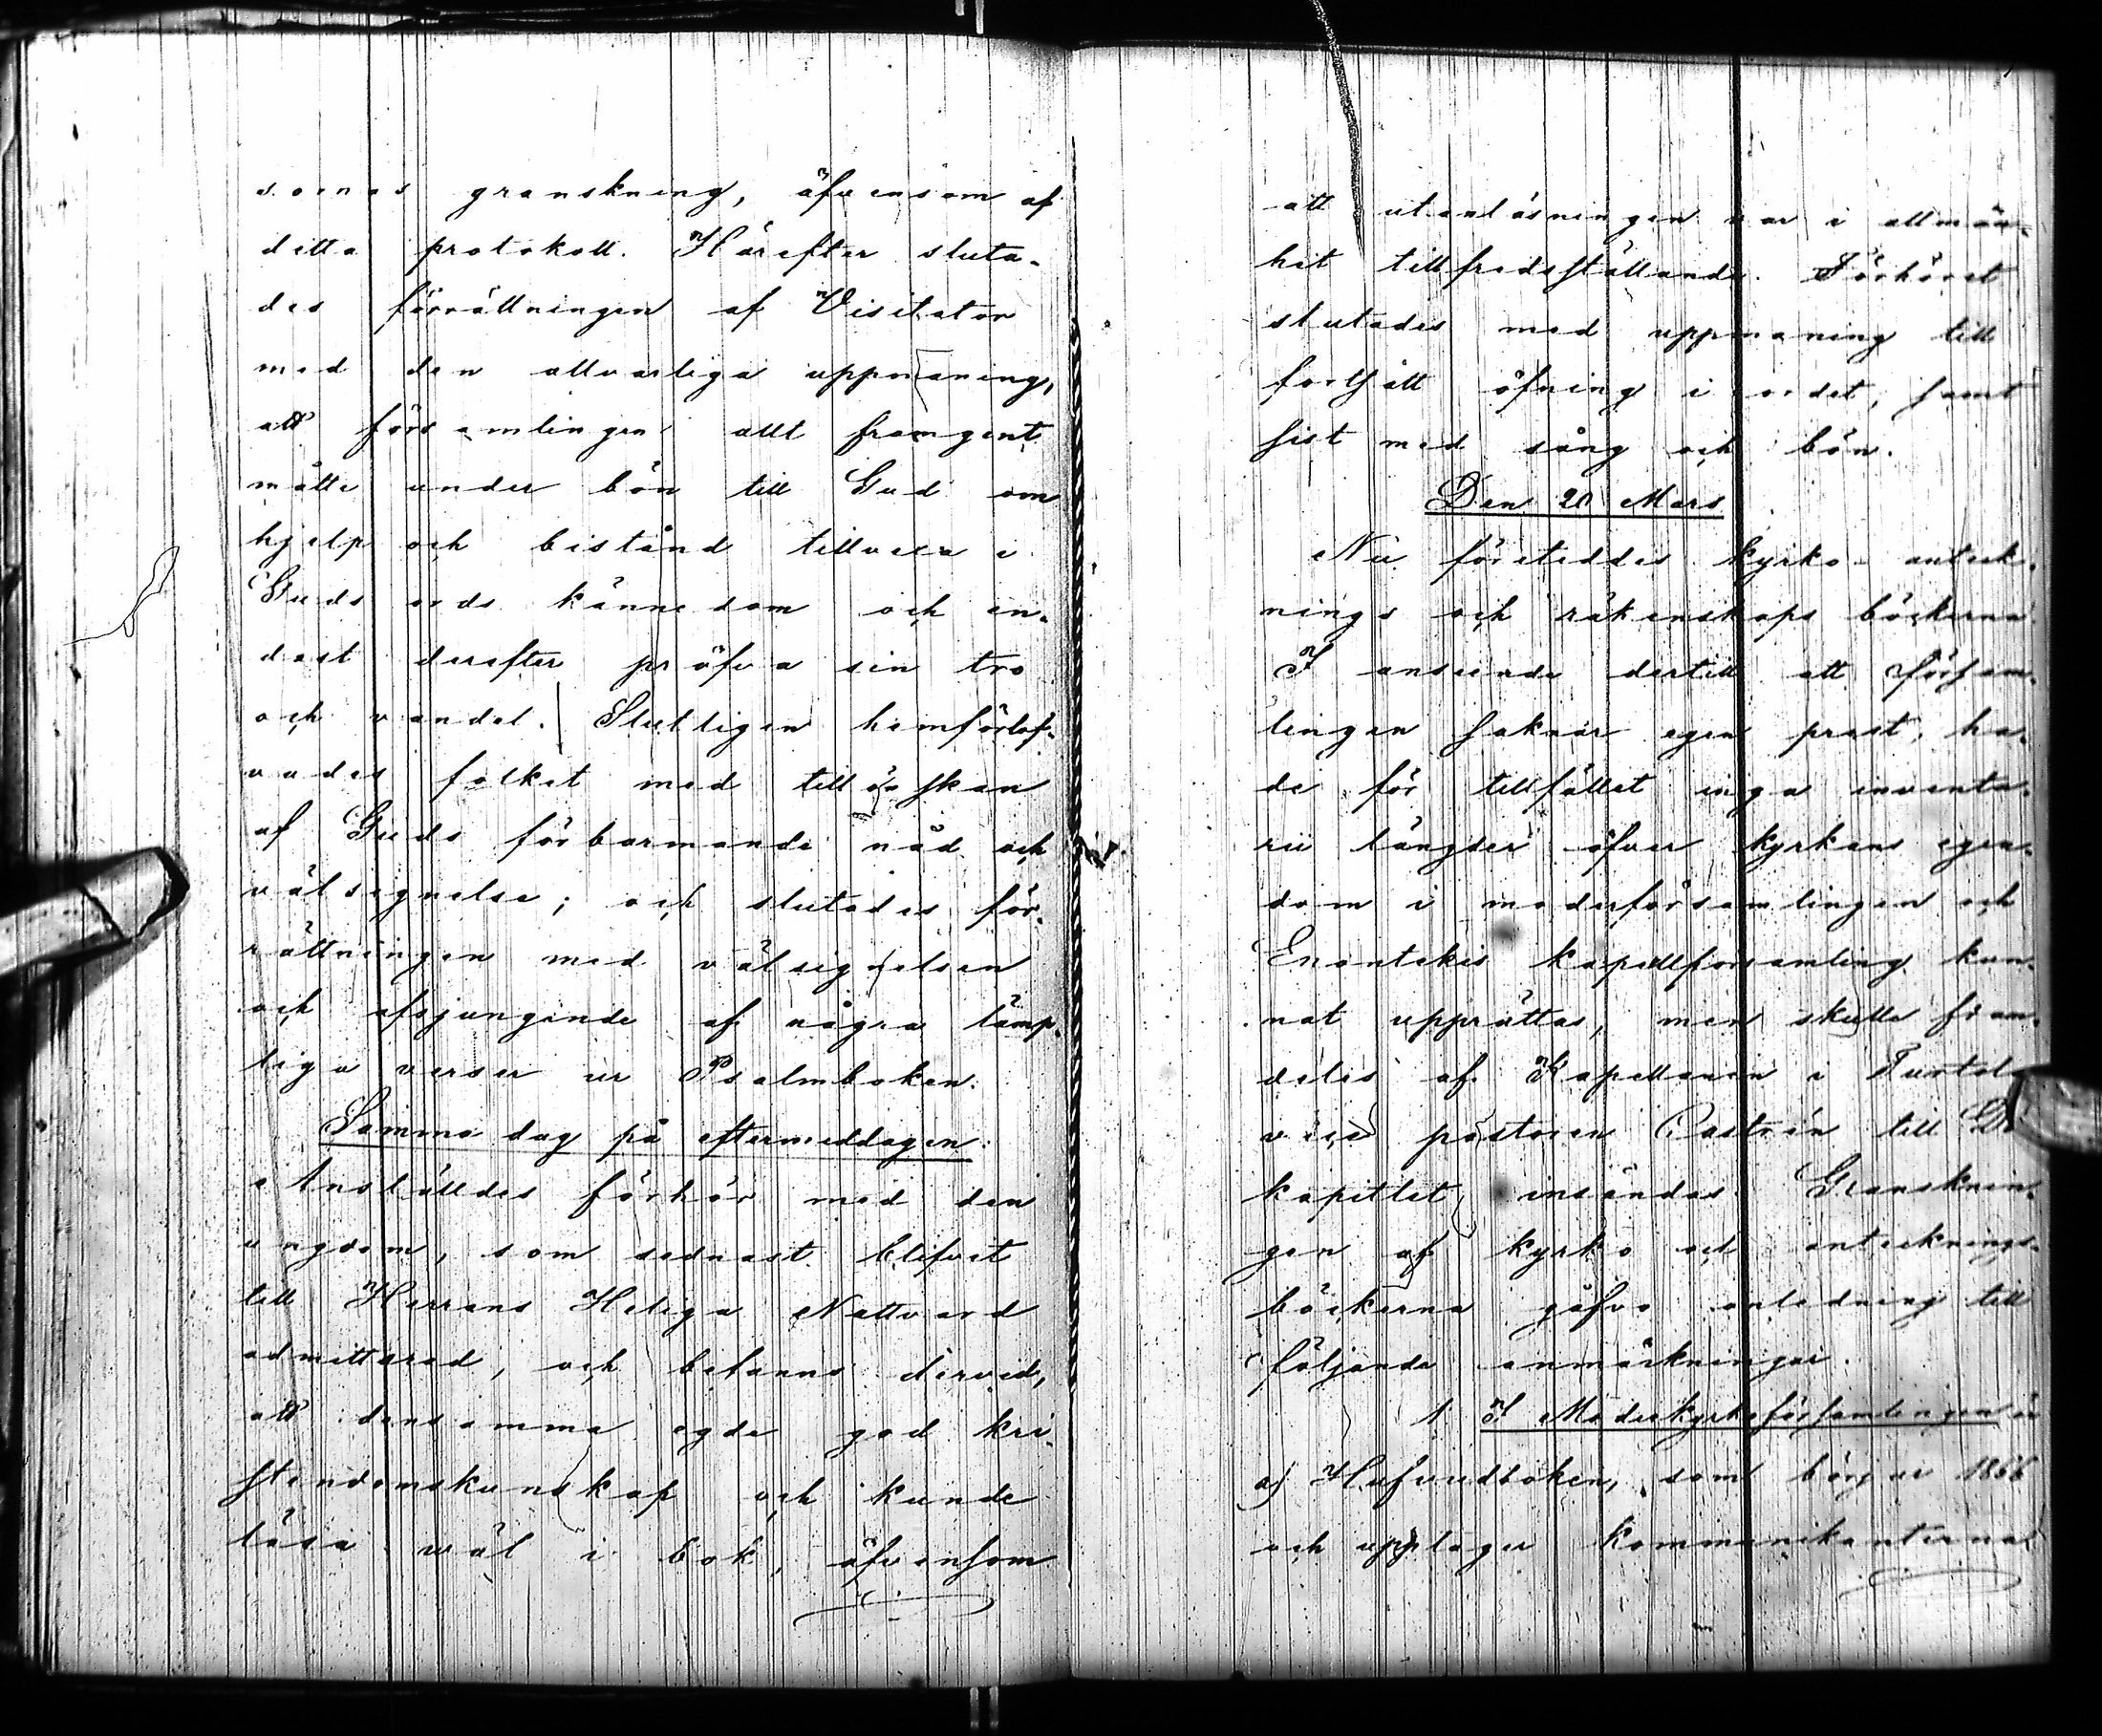 sornas granskning, äfvensom af
detta protokoll. Härefter sluta-
des förrättningen af Visitator
med den allvarliga uppmaning,
att församlingen allt framgent
måtte under bön till Gud om
hjelp och bistånd tillvexa i
Guds ords kännedom och en-
dast derefter pröfva sin tro
och vandel. Slutligen hemförlof-
vades folket med tillönskan
af Guds förbarmande nåd och
välsignelse; och slutades för-
rättningen med välsignelsen
och afsjungande af några lämp-
liga verser ur Psalmboken.
Samma dag på eftermiddagen.
Anställdes förhör med den
ungdom, som sednast blifvit
till Herrans Heliga Nattvard
admitterad, och befanns dervid,
att densamma egde god kri-
stendomskunskap och kunde
läsa wäl i bok, äfvensom
att utanläsningen var i allmän-
het tillfredsställande. Förhöret
slutades med uppmaning till
fortsatt öfning i ordet, samt
sist med sång och bön.
Den 20 Mars
Nu företeddes kyrko- anteck-
nings och räkenskaps böckerna
I anseende dertill att försam-
lingen saknar egen prest, ha-
de för tillfället inga inventa-
rii längder öfver kyrkans egen-
dom i moderförsamlingen och
Enontekis kapellförsamling kun-
nat upprättas, men skulle fram-
deles af Kapellanen i Turtola
vice pastoren Castrén till D
kapitlet insändas. Gransknin-
gen af kyrko och antecknings-
böckerna gåfvo anledning till
följande anmärkningar.
1 I Moderkyrkoförsamlingen är
a) Hufvudboken, som börjar 1866
och upptager kommunikanternas